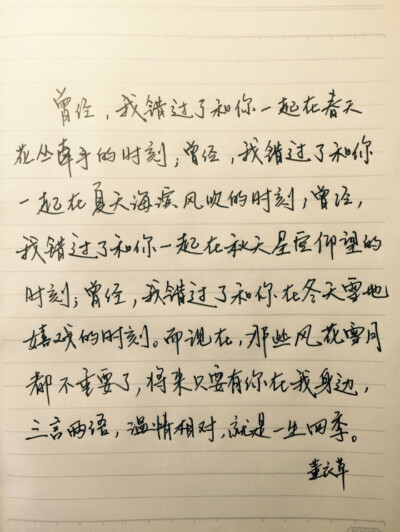 曾经，我错过了和你一起在春天
花丛牵手的时刻；曾经，我错过了和你
一起在夏天海滨风吹的时刻；曾经，
我错过了和你一起在秋天星空仰望的
时刻；曾经，我错过了和你在冬天雪地
嬉戏的时刻。而现在，那些风花雪月
都不重要了，将来只要有你在我身边，
三言两语，温情相对，就是一生四季。